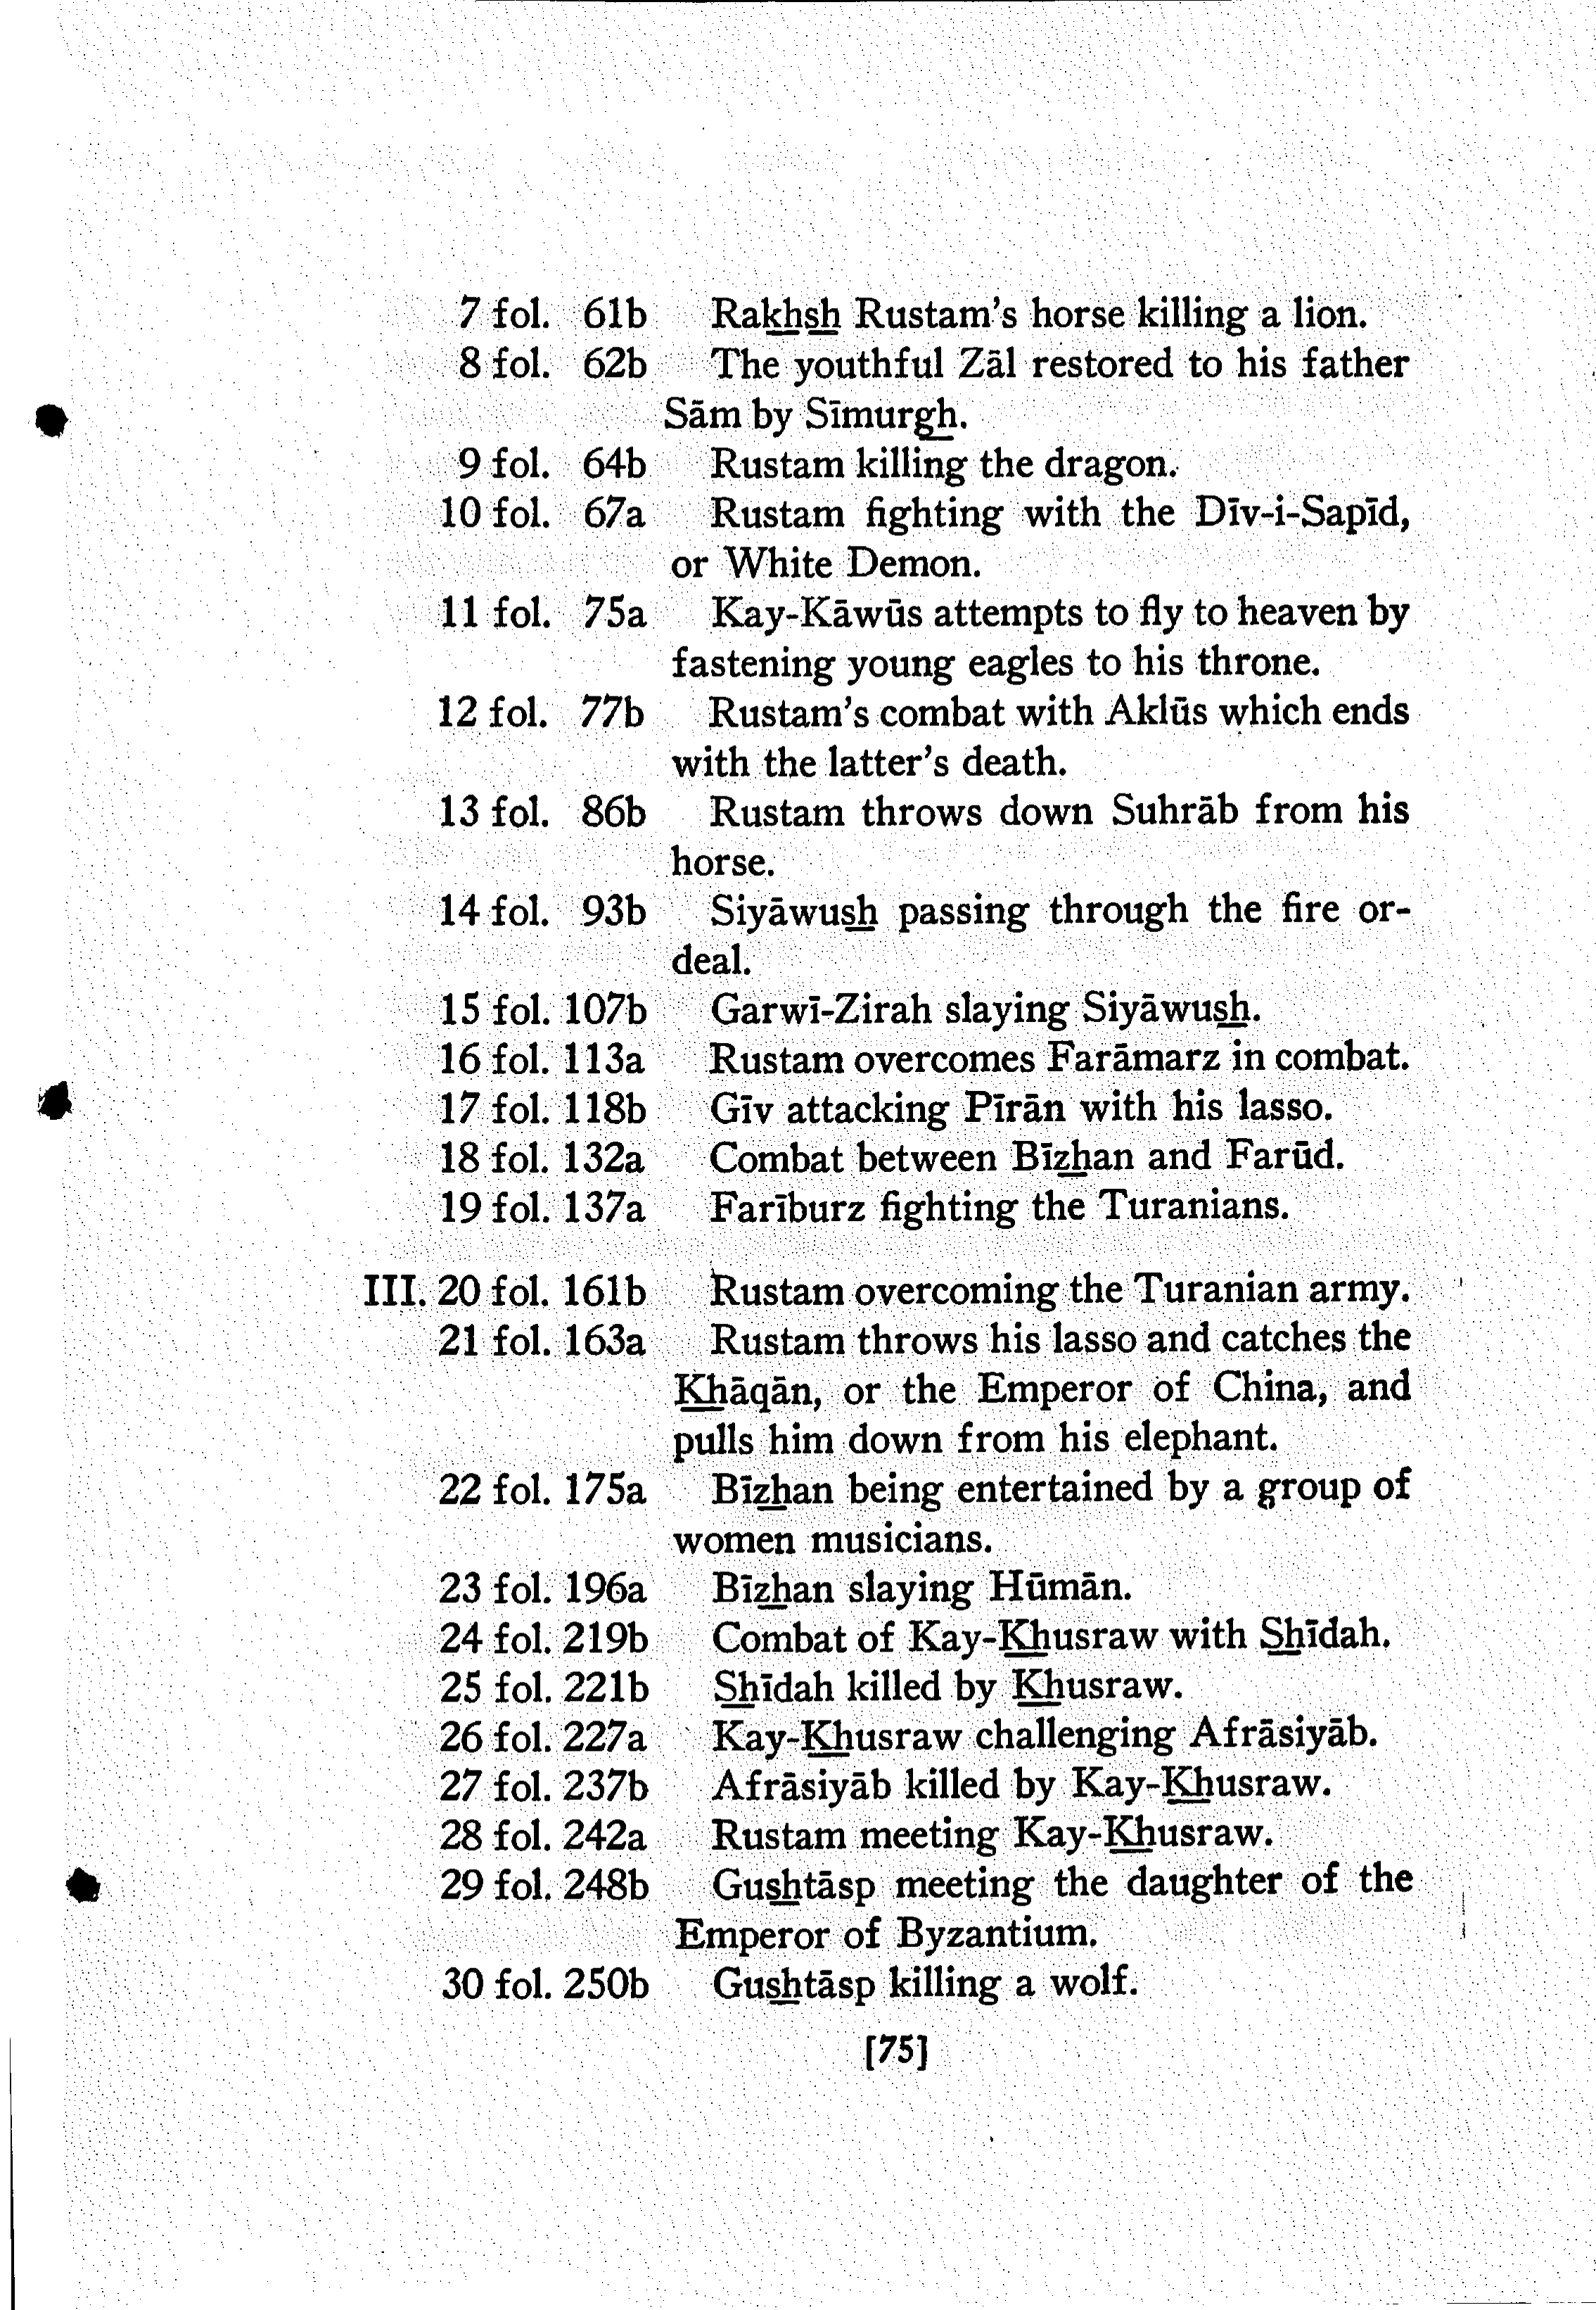 7 fol. 61b Rakhsh Rustam's horse killing a lion.
8 fol. 62b The youthful Zāl restored to his father
Sām by Sīmurgh.
9 fol. 64b Rustam killing the dragon.
10 fol. 67a Rustam fighting with the Dīv-i-Sapīd,
or White Demon.
11 fol. 75a Kay-Kāwūs attempts to fly to heaven by
fastening young eagles to his throne.
12 fol. 77b Rustam's combat with Aklūs which ends
with the latter's death.
13 fol. 86b Rustam throws down Suhrāb from his
horse.
14 fol. 93b Siyāwush passing through the fire or-
deal.
15 fol. 107b Garwī-Zirah slaying Siyāwush.
16 fol. 113a Rustam overcomes Farāmarz in combat.
17 fol. 118b Gīv attacking Pīrān with his lasso.
18 fol. 132a Combat between Bīzhan and Farūd.
19 fol. 137a Farīburz fighting the Turanians.
III. 20 fol. 161b Rustam overcoming the Turanian army.
21 fol. 163a Rustam throws his lasso and catches the
Khāqān, or the Emperor of China, and
pulls him down from his elephant.
22 fol. 175a Bīzhan being entertained by a group of
women musicians.
23 fol. 196a Bīzhan slaying Hūmān.
24 fol. 219b Combat of Kay-Khusraw with Shīdah.
25 fol. 221b Shīdah killed by Khusraw.
26 fol. 227a Kay-Khusraw challenging Afrāsiyāb.
27 fol. 237b Afrāsiyāb killed by Kay-Khusraw.
28 fol. 242a Rustam meeting Kay-Khusraw.
29 fol. 248b Gushtāsp meeting the daughter of the
Emperor of Byzantium.
30 fol. 250b Gushtāsp killing a wolf.
[75]